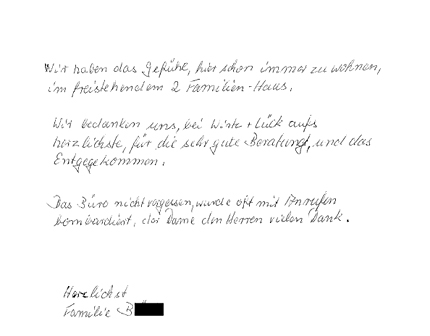 Wir haben das Gefühl, hier schon immer zu wohnen,
im freistehendem 2 Familien-Haus.
Wir bedanken uns, bei Wirte + Lück aufs
herzlichste, für die sehr gute Beratung, und das
Entgegekommen.
Das Büro nicht vergessen, wurde oft mit Anrufen
bombardiert, der Dame den Herren vielen Dank.
Herzlichst
Familie B